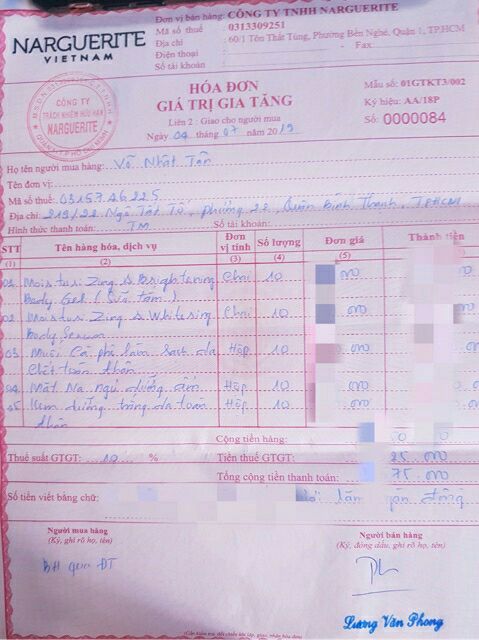 NARGUERITE
VIETNAM
Đơn vị bán hàng: CÔNG TY TNHH NARGUERITE
Mã số thuế : 0313309251
Địa chỉ : 60/1 Tôn Thất Tùng, Phường Bến Nghé, Quận 1, TP.HCM
Điện thoại : - Fax
Số tài khoản :
CÔNG TY
TRÁCH NHIỆM HỮU HẠN
NARGUERITE
HÓA ĐƠN
GIÁ TRỊ GIA TĂNG
Liên 2 : Giao cho người mua
Ngày 04 tháng 07 năm 2019
Mẫu số: 01GTKT3/002
Ký hiệu: AA/18P
Số: 0000084
Họ tên người mua hàng: Võ Nhất Tân
Tên đơn vị:
Mã số thuế: 0315726225
Địa chỉ: 219/22 Ngô Tất Tố, phường 22, Quận Bình Thạnh, TPHCM
Hình thức thanh toán: TM Số tài khoản:
STT Tên hàng hóa, dịch vụ Đơn vị tính Số lượng Đơn giá Thành tiền
(1) (2) (3) (4) (5)
01 Moisturizing & Brightening Chai 10 000
Body Gel (Sữa tắm)
02 Moisturizing & Whitening Chai 10 000
Body Serum
03 Muối Cà phê làm sạch da Hộp 10
Chết toàn thân
04 Mặt Nạ ngủ dưỡng ẩm Hộp 10
05 Kem dưỡng trắng da toàn Hộp 10
thân
Cộng tiền hàng:
Thuế suất GTGT: 10 % Tiền thuế GTGT: 25.000
Tổng cộng tiền thanh toán: 75.000
Số tiền viết bằng chữ: đồng
Người mua hàng
(Ký, ghi rõ họ, tên)
Người bán hàng
(Ký, đóng dấu, ghi rõ họ, tên)
BH qua ĐT
Lương Văn Phong
(Cần kiểm tra, đối chiếu khi lập, giao, nhận hóa đơn)